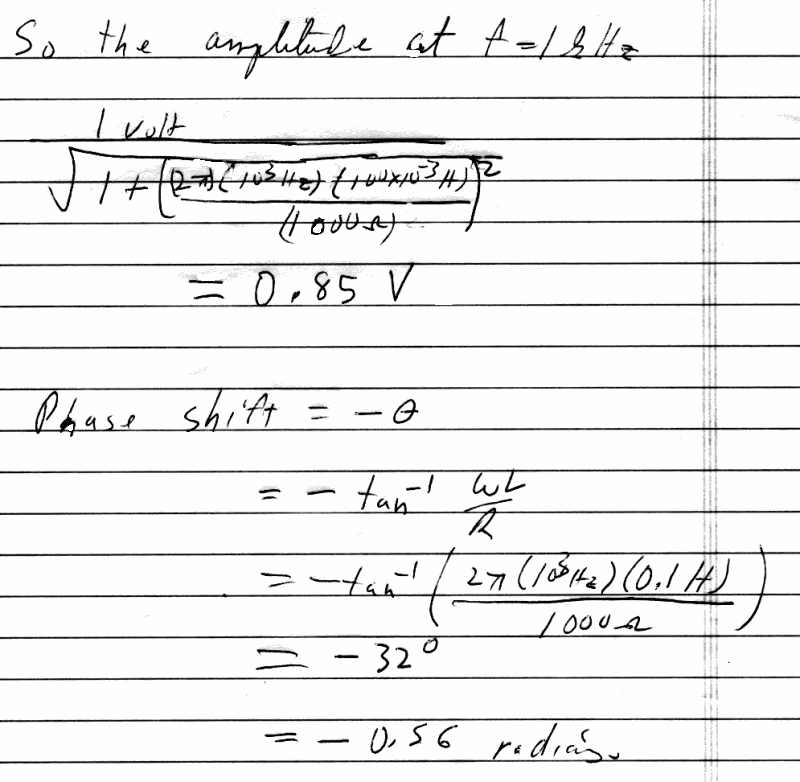 So the amplitude at f = 1 kHz
1 volt
√1 + [(2π)(10³ Hz)(100×10⁻³ H)]²
(1000Ω)
= 0.85 V
Phase shift = -θ
= - tan⁻¹ ωL
R
= -tan⁻¹ (2π(10³Hz)(0.1H))
1000Ω
= -32°
= -0.56 radians.